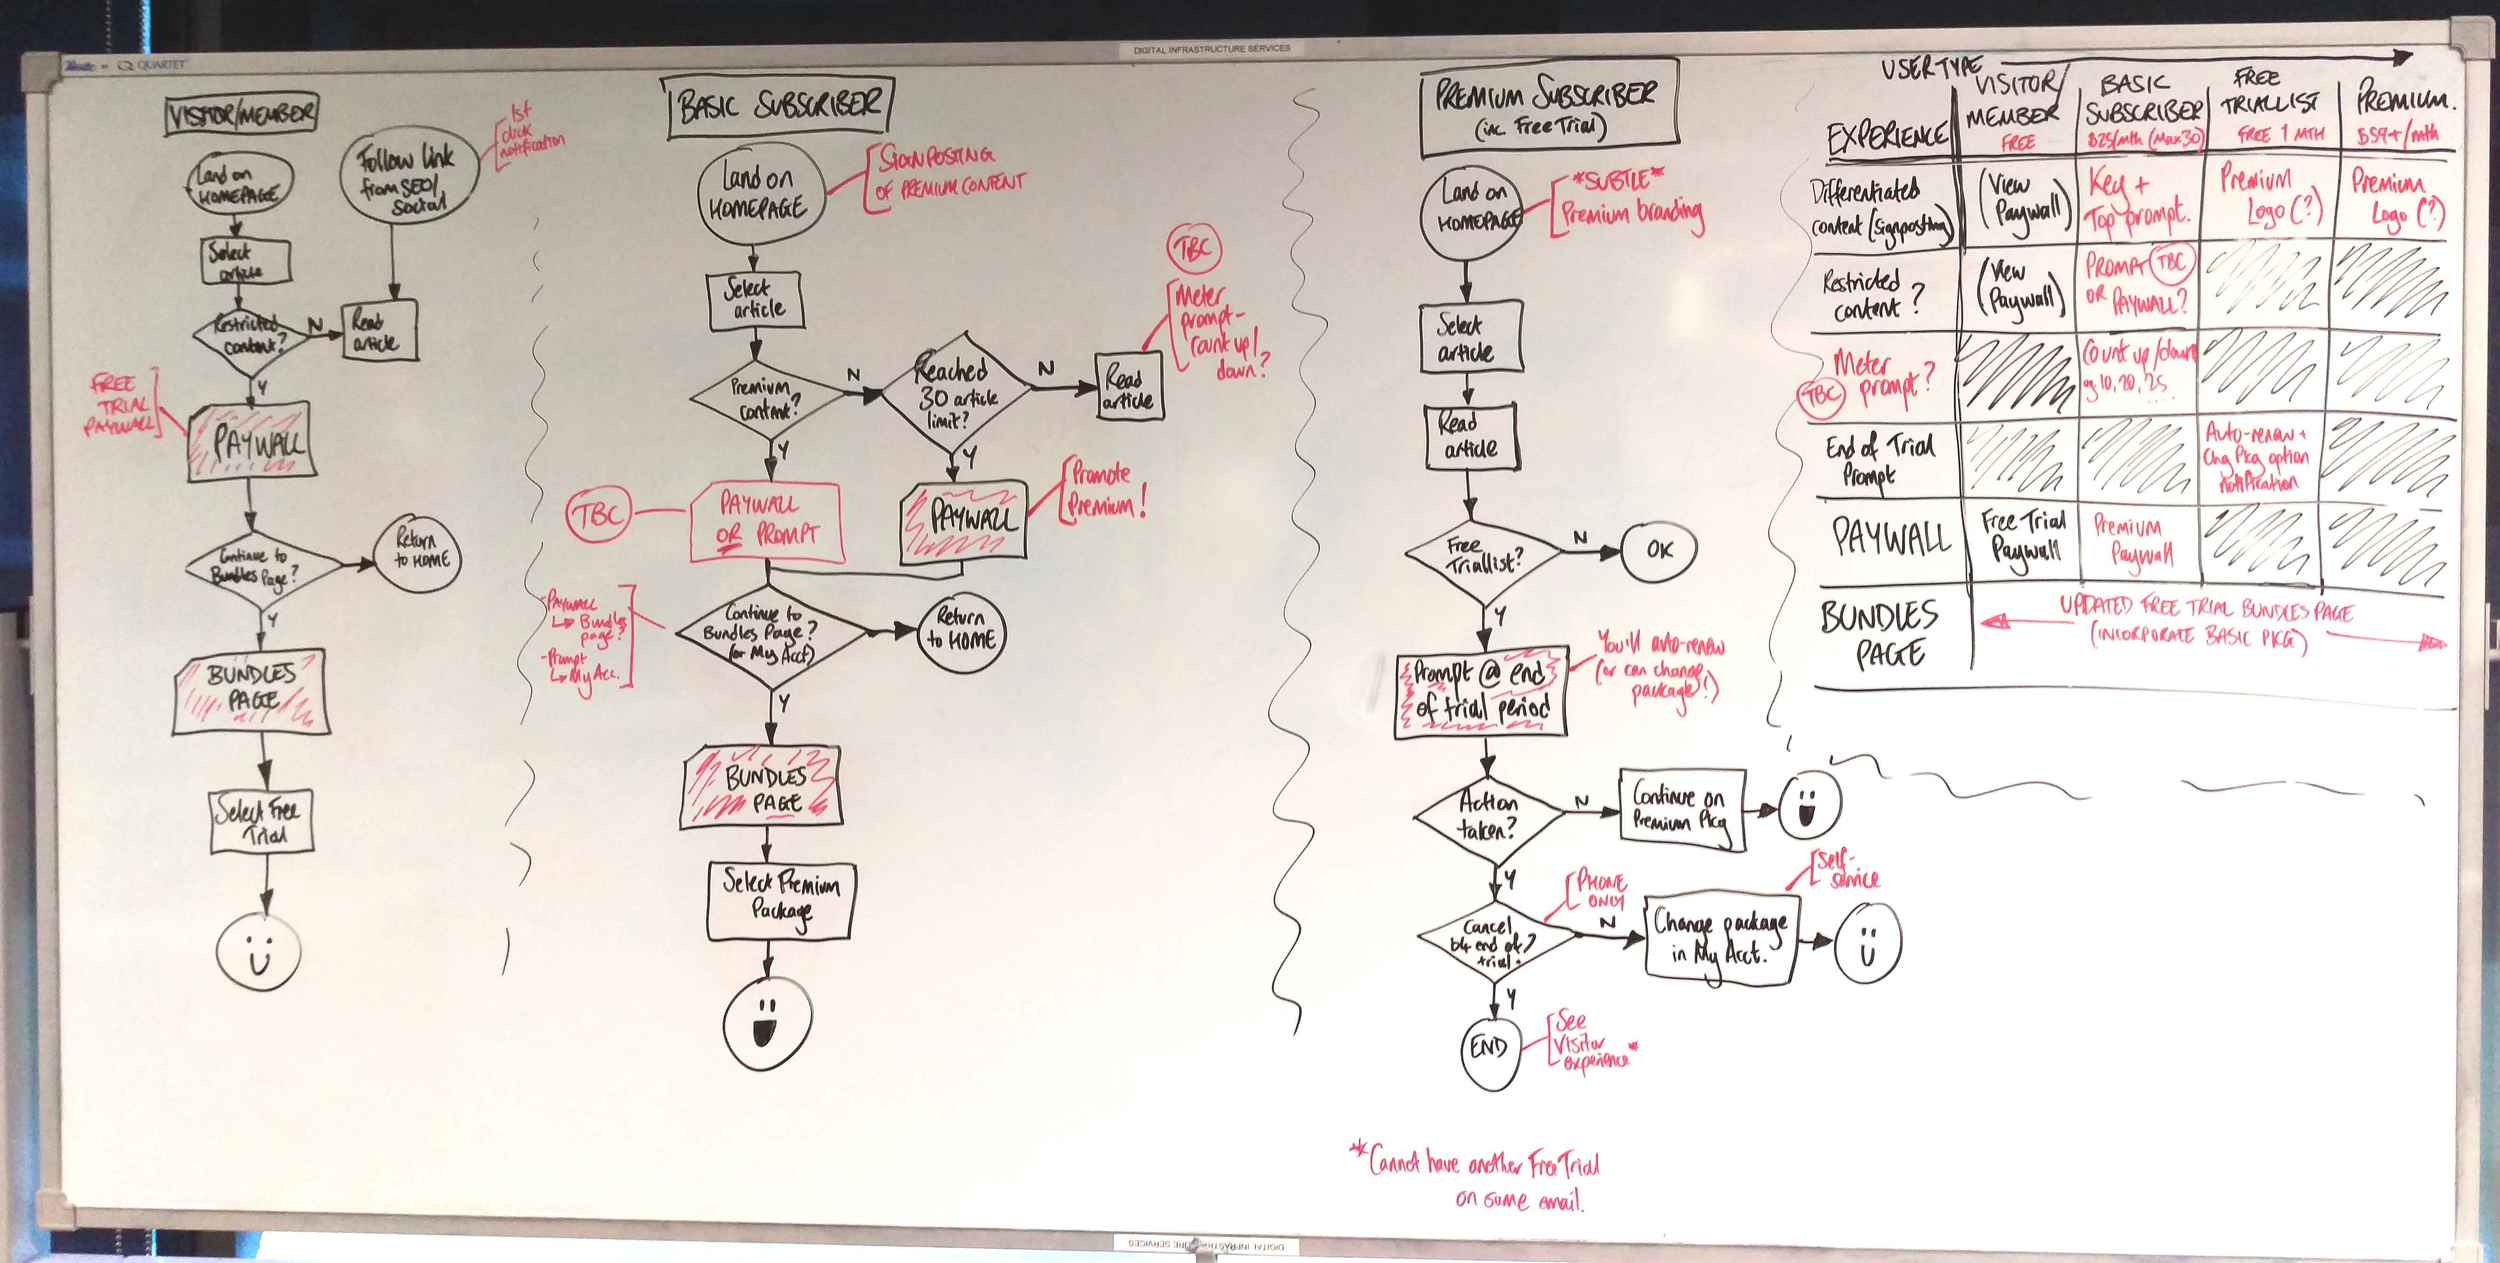 DIGITAL INFRASTRUCTURE SERVICES
QUARTET
VISITOR/MEMBER
Land on
HOMEPAGE
Follow link
from SEO/
social
1st
click
notification
Select
article
Restricted
content?
N
Read
article
Y
FREE
TRIAL
PAYWALL
PAYWALL
Continue to
Bundles Page?
Return
to HOME
Y
BUNDLES
PAGE
Select Free
Trial
BASIC SUBSCRIBER
Land on
HOMEPAGE
SIGNPOSTING
OF PREMIUM CONTENT
Select
article
Premium
content?
N
Reached
30 article
limit?
N
Read
article
TBC
Meter
prompt-
count up/
down?
Y
Y
TBC
PAYWALL
OR PROMPT
PAYWALL
Promote
Premium!
-PAYWALL
Bundles
page?
-Prompt
My Acc.
Continue to
Bundles Page?
(or My Acct)
Return
to HOME
Y
BUNDLES
PAGE
Select Premium
Package
PREMIUM SUBSCRIBER
(inc Free Trial)
Land on
HOMEPAGE
*SUBTLE*
Premium branding
Select
article
Read
article
Free
Triallist?
N
OK
Y
Prompt @ end
of trial period
You'll auto-renew
(or can change
package!)
Action
taken?
N
Continue on
Premium Pkg
Y
Cancel
b4 end of
trial?
PHONE
ONLY
N
Change package
in My Acct.
Self-
service
Y
END
See
Visitor
experience*
*Cannot have another Free Trial
on same email.
USER TYPE
EXPERIENCE
VISITOR/
MEMBER
FREE
BASIC
SUBSCRIBER
$25/mth (Max 30)
FREE
TRIALLIST
FREE 1 MTH
PREMIUM.
$59+/mth
Differentiated
content (signposting)
(View
Paywall)
Key +
Top prompt.
Premium
Logo (?)
Premium
Logo (?)
Restricted
content?
(View
Paywall)
PROMPT TBC
OR PAYWALL?
Meter
prompt?
TBC
Count up/down
eg 10, 20, 25...
End of Trial
Prompt
Auto-renew +
Chg Pkg option
notification
PAYWALL
Free Trial
Paywall
Premium
Paywall
BUNDLES
PAGE
UPDATED FREE TRIAL BUNDLES PAGE
(INCORPORATE BASIC PKG)
DIGITAL INFRASTRUCTURE SERVICES